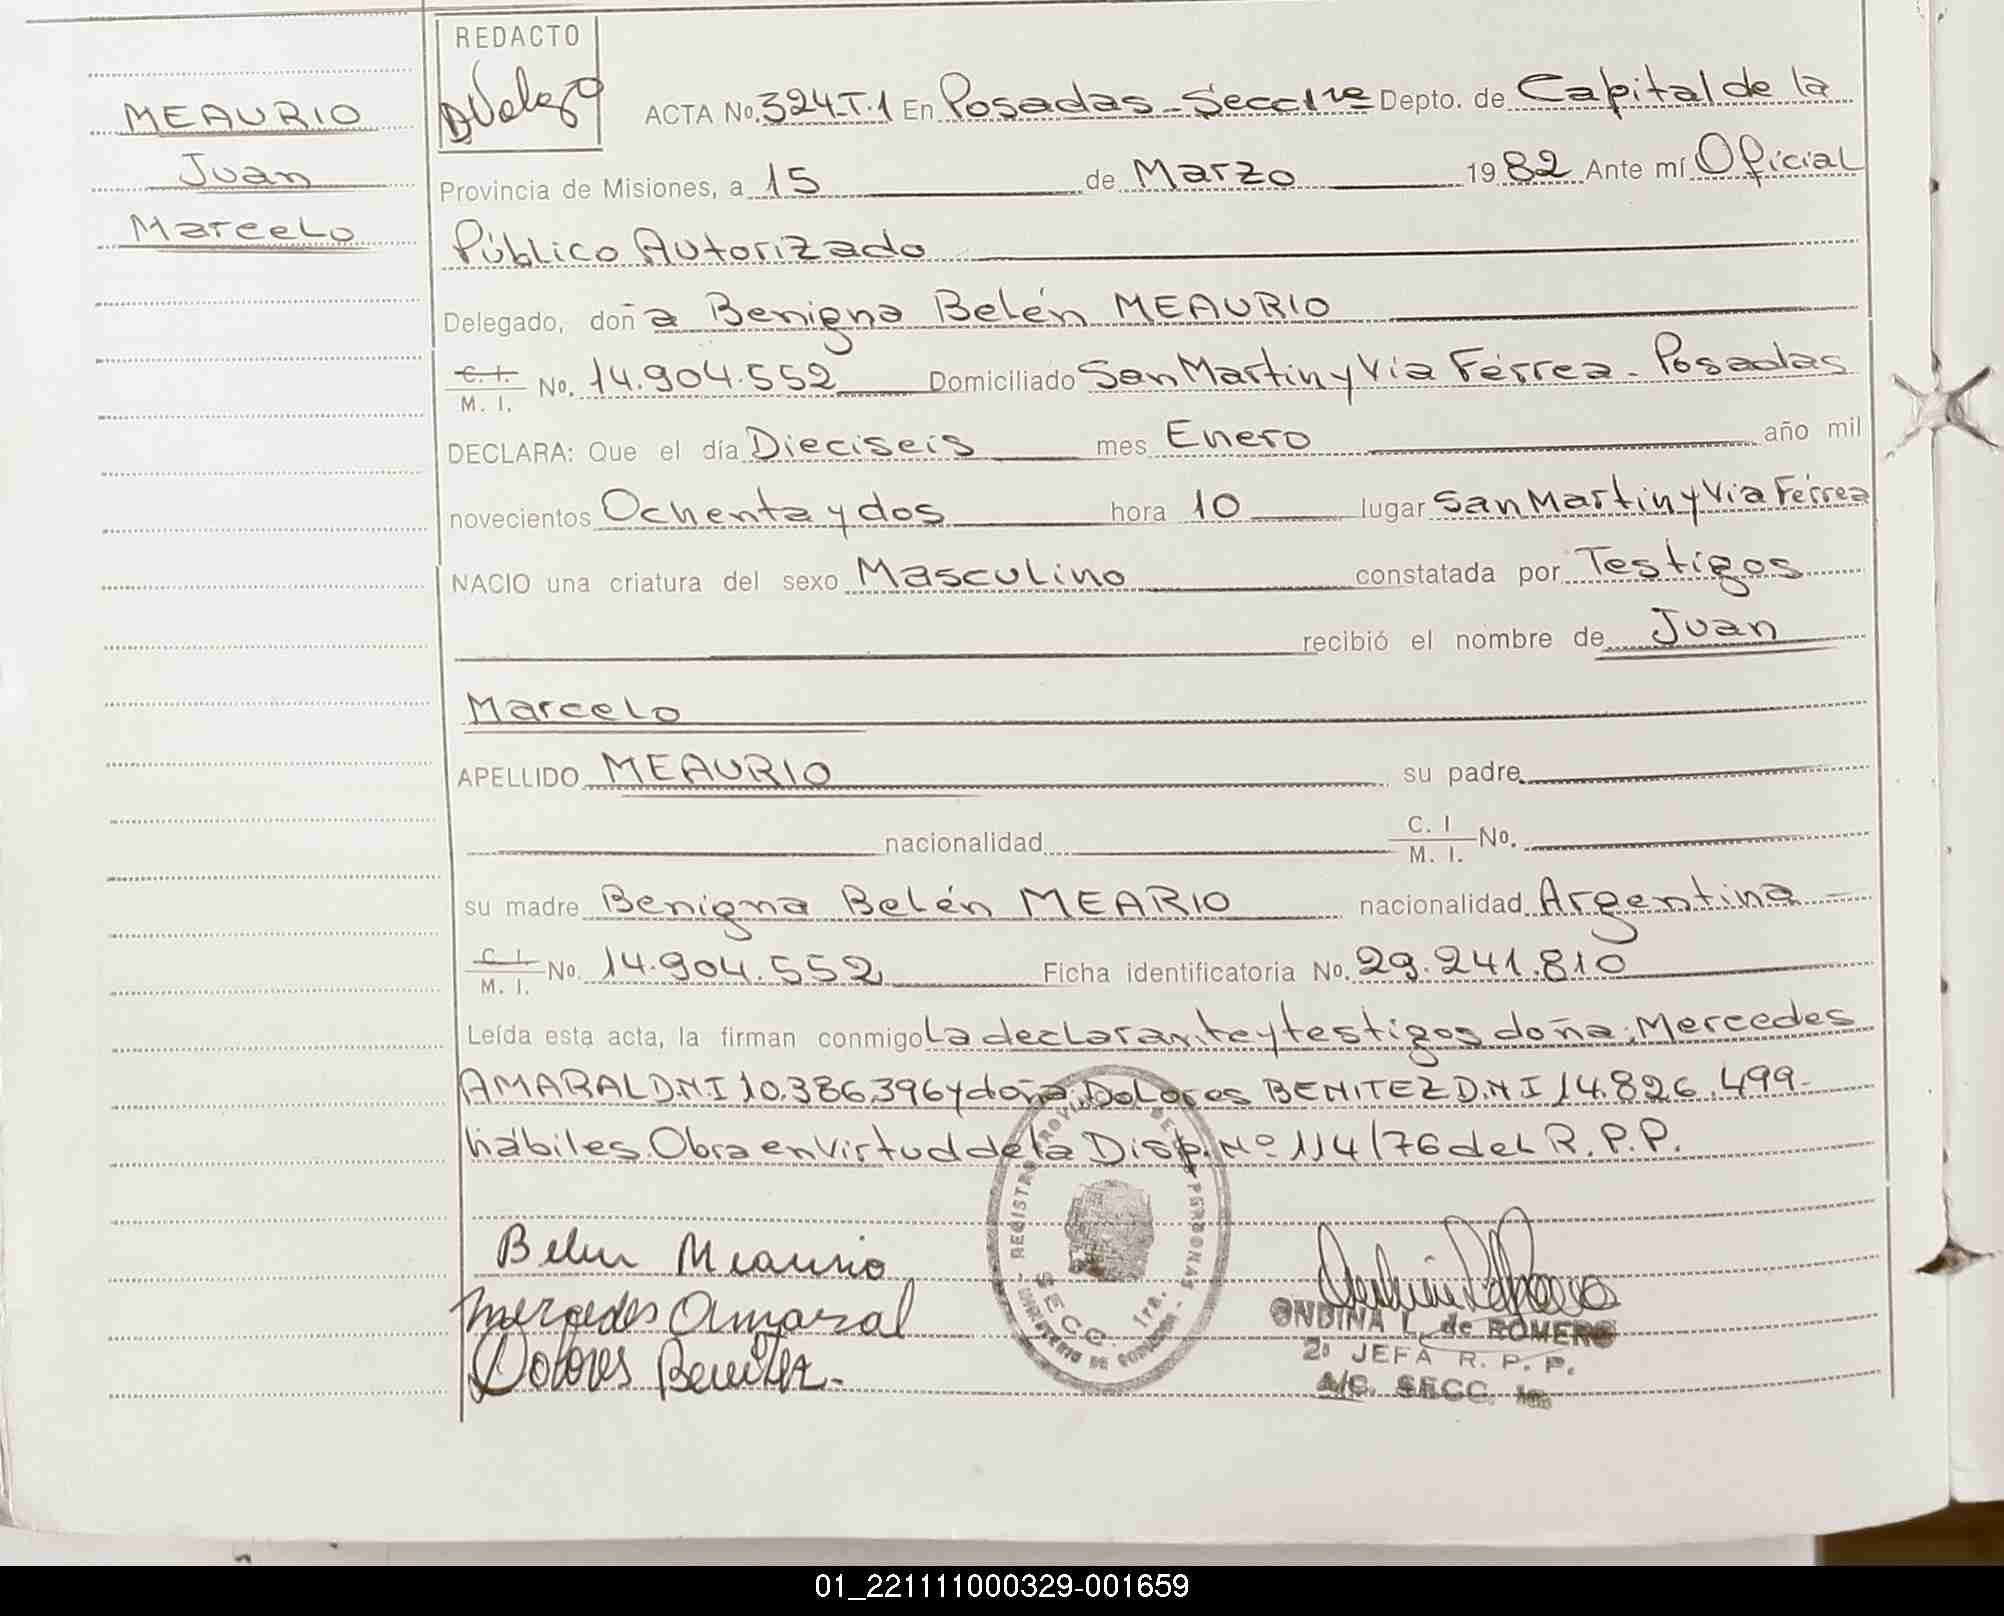 REDACTO
MEAURIO
Juan
Marcelo
ACTA No. 324.T.1 En Posadas - Secc 1ra Depto. de Capital de la
Provincia de Misiones, a 15 de Marzo 1982 Ante mí Oficial
Público Autorizado
Delegado, doña Benigna Belén MEAURIO
C. I. / M. I. No. 14.904.552 Domiciliado San Martin y Via Férrea - Posadas
DECLARA: Que el día Dieciseis mes Enero año mil
novecientos Ochenta y dos hora 10 lugar San Martin y Via Férrea
NACIO una criatura del sexo Masculino constatada por Testigos
recibió el nombre de Juan
Marcelo
APELLIDO MEAURIO su padre
nacionalidad C. I / M. I. No.
su madre Benigna Belén MEARIO nacionalidad Argentina
C. I. / M. I. No. 14.904.552 Ficha identificatoria No. 29.241.810
Leída esta acta, la firman conmigo La declarante y testigos doña: Mercedes
AMARAL D.N.I 10.386.396 y doña: Dolores BENITEZ D.N.I 14.826.499-
hábiles. Obra en virtud de la Disp. Nº 114/76 del R.P.P.
Belen Meaurio
Mercedes Amaral
Dolores Benitez.-
SECC. 1ra.
ONDINA L. de ROMERO
2º JEFA R. P. P.
A/C. SECC. 1ra
01_221111000329-001659